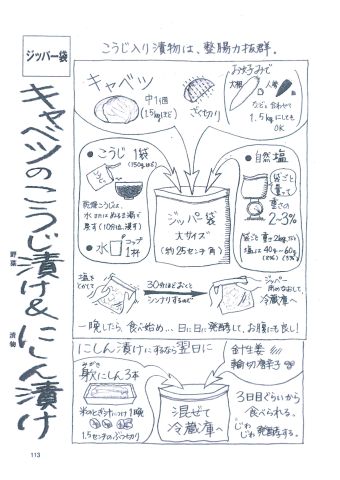 ジッパー袋
キャベツのこうじ漬け&にしん漬け
野菜
漬物
こうじ入り漬物は、整腸力抜群。
キャベツ
中1個
(1.5kgほど)
ざく切り
お好みで
大根
人参
などと合わせて
1.5kgにしても
OK
●こうじ 1袋
乾燥こうじは、
水またはぬるま湯で
戻す(10分位、浸す)
●水
コップ
1杯
ジッパー袋
大サイズ
(約25センチ角)
●自然塩
袋ごと
量って
重さの
2~3%
袋ごと重さ2kgなら
塩は40g~60g
(2%)(3%)
塩を
くわえて
30分ほどおくと
シンナリするので
ジッパー
閉めなおして、
冷蔵庫へ
一晩したら、食べ始め…日に日に発酵して、お腹にも良し!
にしん漬けにするなら翌日に
みがき
身欠にしん3本
米のとぎ汁につけ1晩
1.5センチのぶつ切り
混ぜて
冷蔵庫へ
針生姜
輪切唐辛子
3日目ぐらいから
食べられる。
じわじわ発酵する。
113